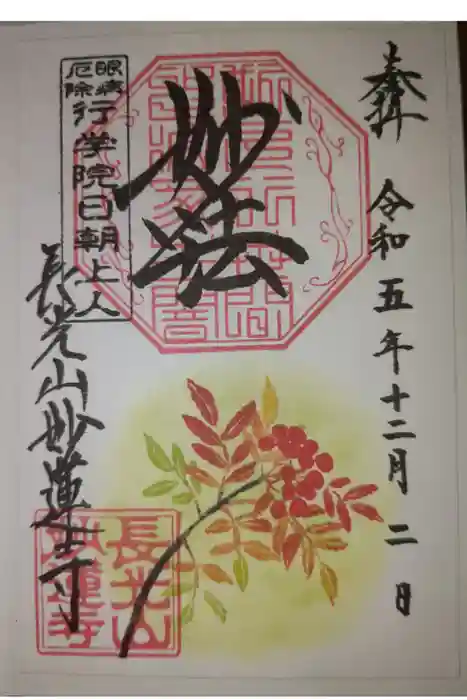 奉拝
令和五年十二月二日
妙法
眼病
厄除
行学院日朝上人
長光山妙蓮寺
長光山
妙蓮寺